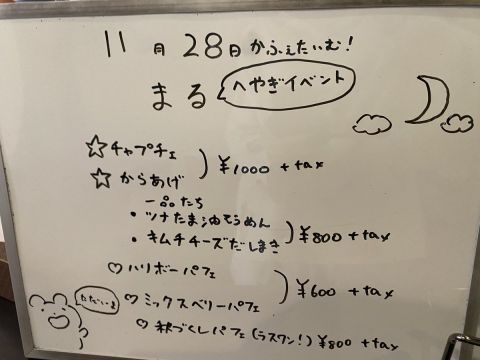 11月28日かふぇたいむ!
まる
へやぎイベント
☆チャプチェ
¥1000+tax
☆からあげ
一品たち
・ツナたま油そうめん
¥800+tax
・キムチチーズだしまき
♡ハリボーパフェ
¥600+tax
ただいま
♡ミックスベリーパフェ
♡秋づくしパフェ(ラスワン!)¥800+tax